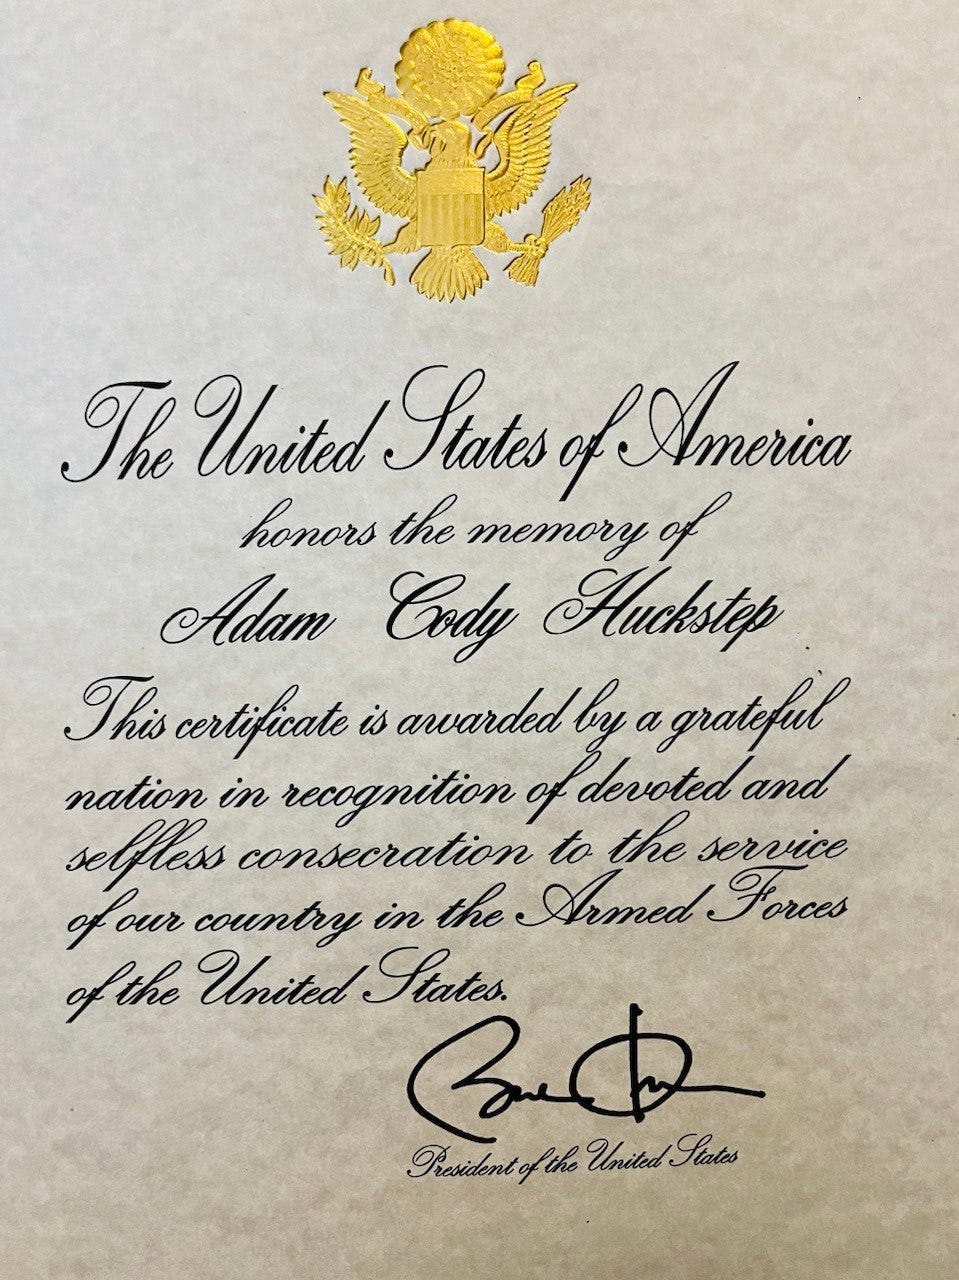 The United States of America
honors the memory of
Adam Cody Huckstep
This certificate is awarded by a grateful
nation in recognition of devoted and
selfless consecration to the service
of our country in the Armed Forces
of the United States.
President of the United States